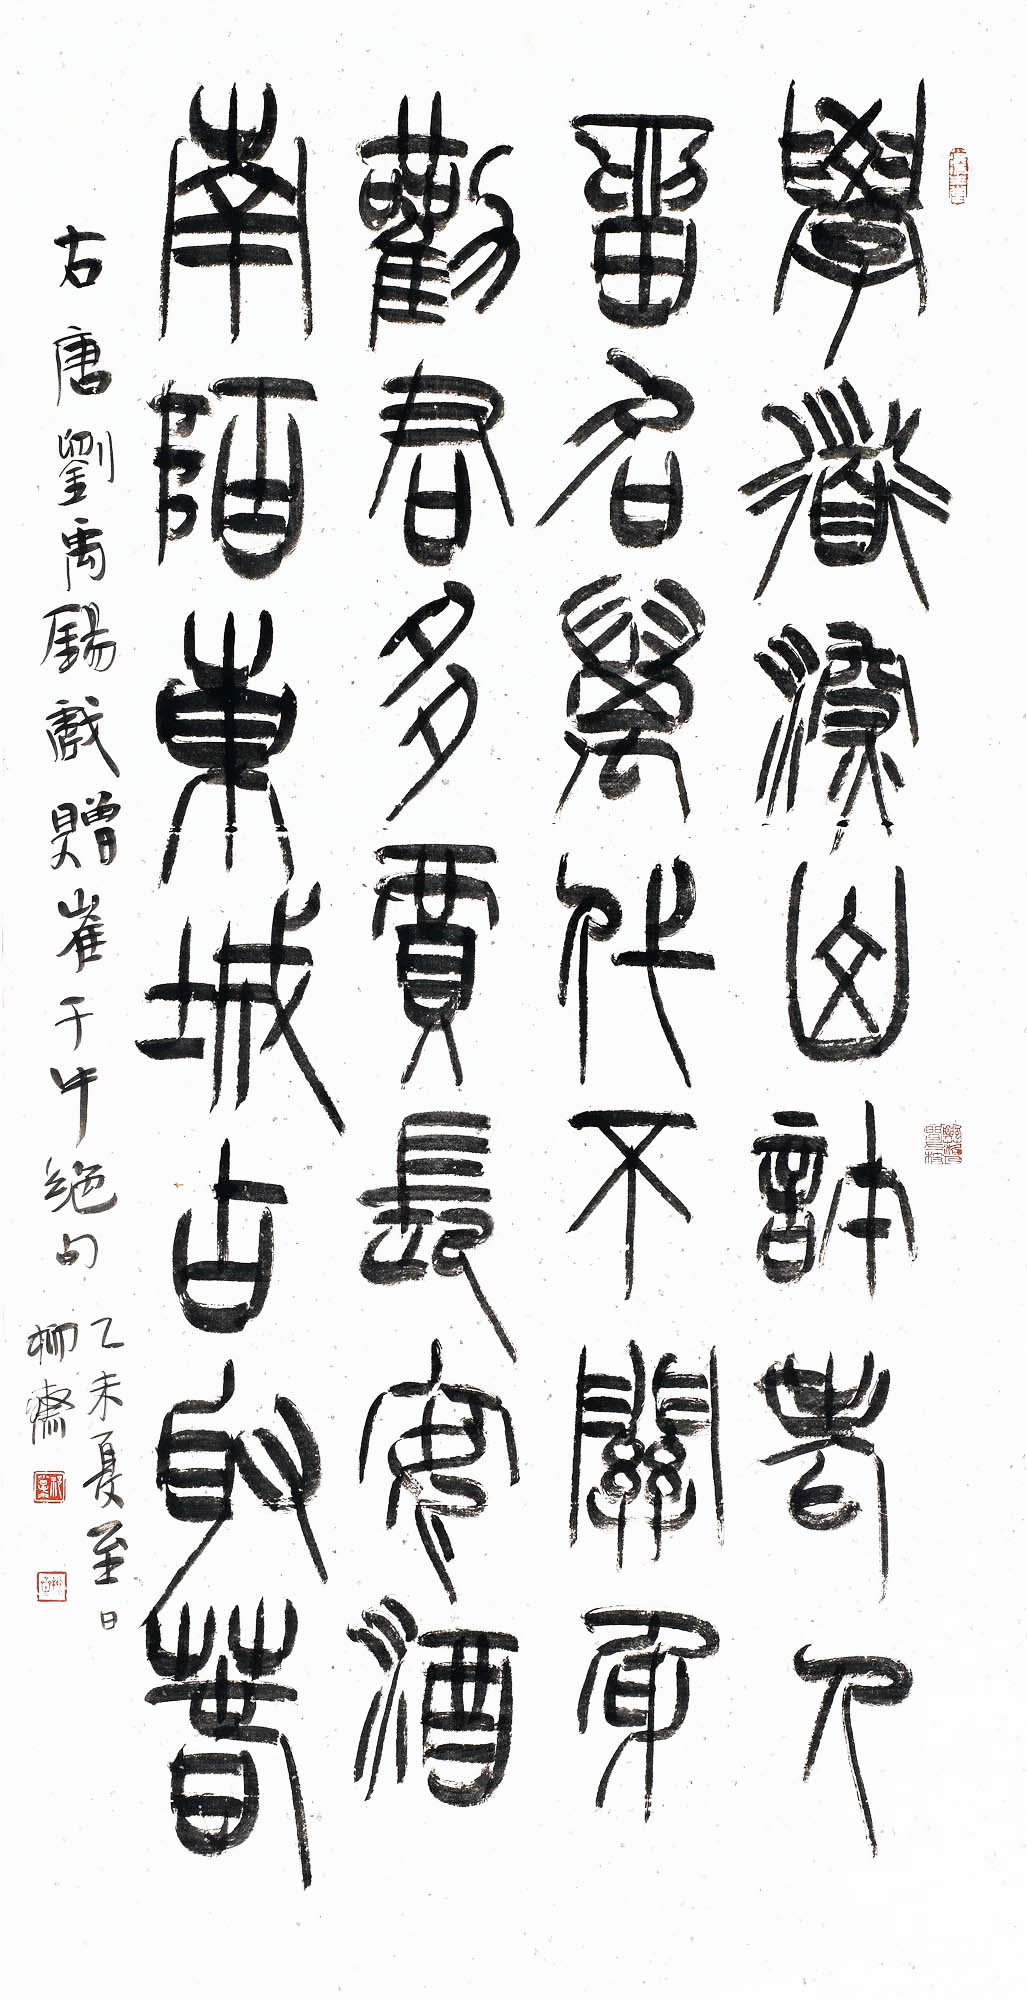 學道深山許老人
留名萬代不關身
勸君多買長安酒
南陌東城占取春
右唐劉禹錫戲贈崔千牛絕句
乙未夏至日
柳齋